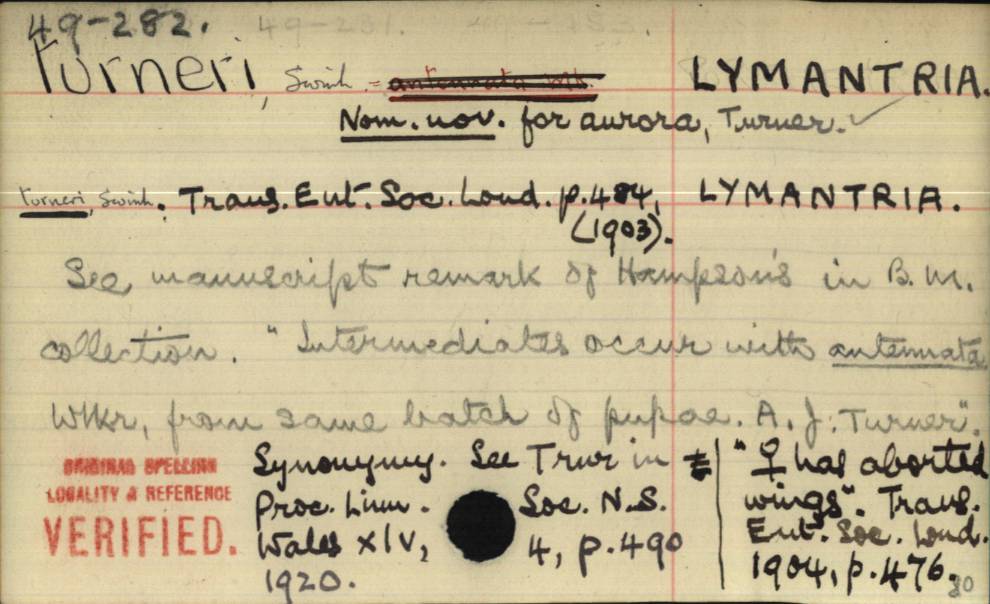 49-282. 49-281.
Turneri, Swinh = antennata Wlk. LYMANTRIA.
Nom. nov. for aurora, Turner. ✓
turneri, Swinh. Trans. Ent. Soc. Lond. p.484, LYMANTRIA.
(1903).
See manuscript remark of Hampson's in B. M.
collection. "Intermediates occur with antennata
Wlkr, from same batch of pupae. A. J. Turner".
ORIGINAL SPELLING
LOCALITY & REFERENCE
VERIFIED.
Synonymy. See Trnr in
Proc. Linn. Soc. N.S.
Wales XLV, 4, p.490
1920.
"♀ has aborted
wings". Trans.
Ent. Soc. Lond.
1904, p.476.
30